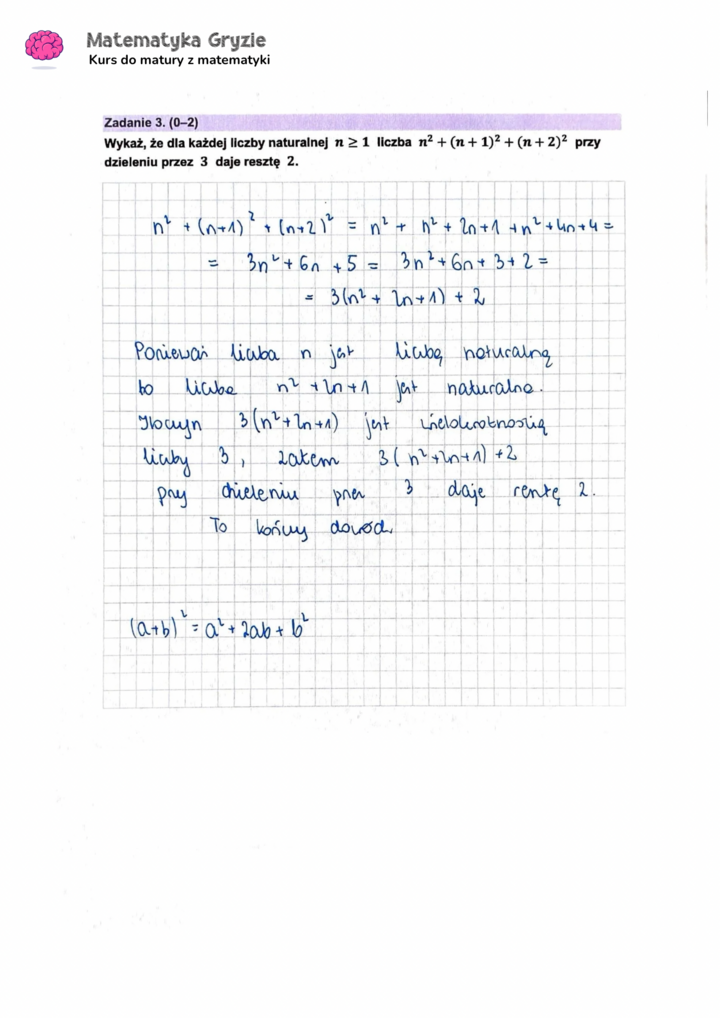 Matematyka Gryzie
Kurs do matury z matematyki
Zadanie 3. (0–2)
Wykaż, że dla każdej liczby naturalnej n ≥ 1 liczba n² + (n + 1)² + (n + 2)² przy
dzieleniu przez 3 daje resztę 2.
n² + (n+1)² + (n+2)² = n² + n² + 2n+1 + n² + 4n+4 =
= 3n² + 6n + 5 = 3n² + 6n + 3 + 2 =
= 3(n² + 2n+1) + 2
Ponieważ liczba n jest liczbą naturalną
to liczba n² + 2n + 1 jest naturalna.
Iloczyn 3(n² + 2n + 1) jest wielokrotnością
liczby 3, zatem 3(n² + 2n + 1) + 2
przy dzieleniu przez 3 daje resztę 2.
To kończy dowód.
(a+b)² = a² + 2ab + b²